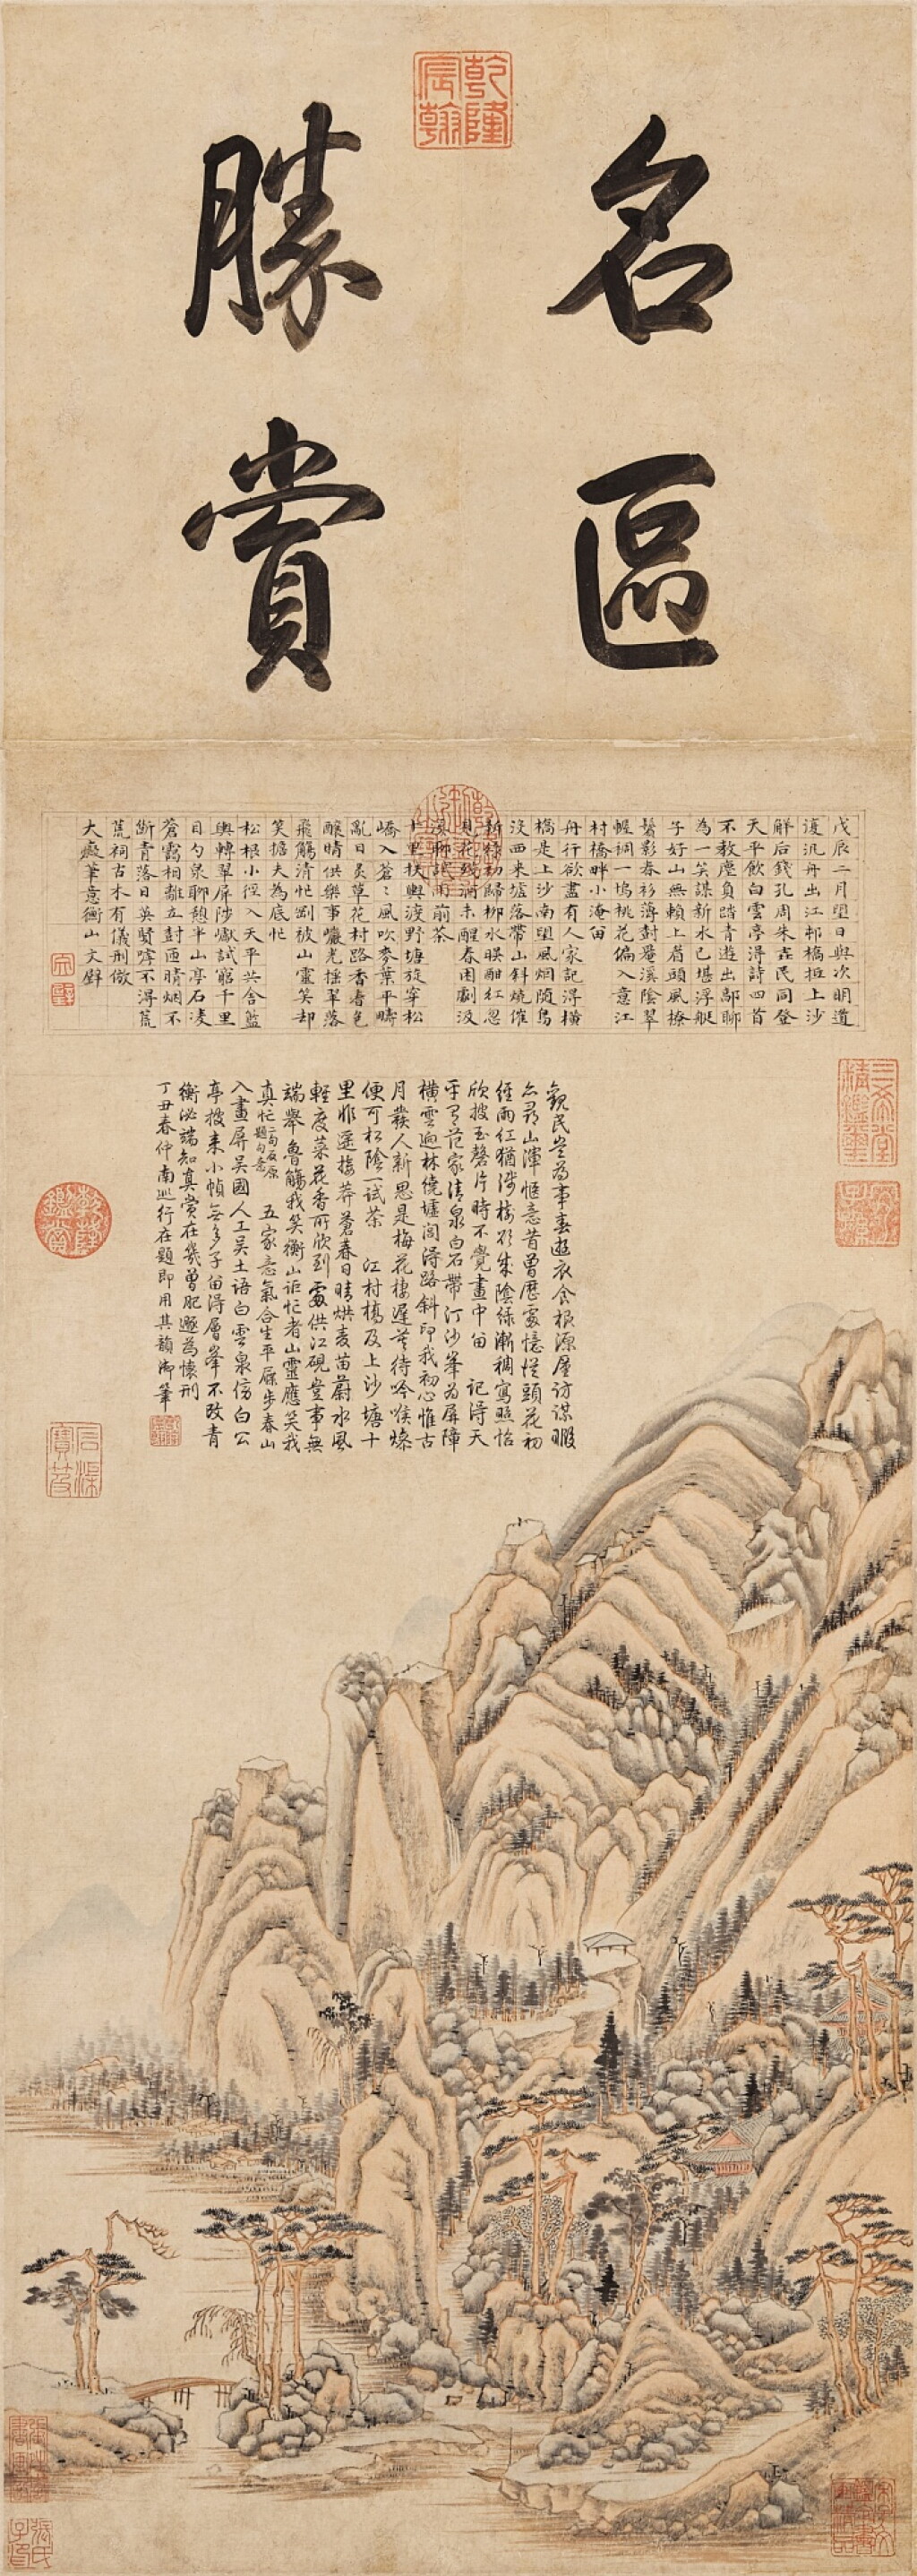 乾隆宸翰
名區
勝賞
乾隆御覽之寶
戊辰二月望日與次明道
復汎舟出江邨橋抵上沙
解后錢孔周朱堯民同登
天平飲白雲亭淂詩四首
不教塵負踏青遊出鄗聊
為一笑謀新水已堪浮艇
子好山無賴上著頭風撩
鬢影春衫薄封罨溪陰翠
幄稠一塢桃花偏入意江
村橋畔小淹留
舟行欲盡有人家記淂橫
橋是上沙南望風烟隨鳥
沒西來墟落帶山斜燒催
新綠初歸柳水暎酣紅忽
見花殘酒未醒春困劇汲
溪聊試雨前茶
十里扶輿渡野塘旋穿松
嶠入蒼々風吹麥葉平疇
亂日炙草花村路香春色
釀晴供樂事巘光搖翠落
飛觴清忙剛被山靈笑却
笑擔夫為底忙
松根小徑入天平共舍籃
輿轉翠屏陟巘試窮千里
目勺泉聊憩半山亭石凌
蒼靄相離立封匝晴烟不
斷青落日英賢嘑不淂荒
荒祠古木有儀刑倣
大癡筆意衡山文璧
文璧
三希堂精鑑璽
宜子孫
觀民豈為事春遊衣食根源廑訪謀暇
亦尋山渾愜意昔曾歷處憶從頭花初
經雨紅猶淺樹欲成陰綠漸稠寫照恰
欣披玉磬片時不覺畫中留 記淂天
平是范家清泉白石帶汀沙峯為屏障
橫雲迥林繞墟閭淂路斜印我初心惟古
月發人新思是梅花棲遲莫待吟喉燥
便可松陰一試茶 江村橋及上沙塘十
里非遥接莽蒼春日晴烘麦苗蔚水風
輕度菜花香所欣到處供江硯豈事無
端舉魯觴我笑衡山詎忙者山靈應笑我
真忙 二句反原題句意 五家意氣合生平屧步春山
入畫屏吴國人工吴土語白雲泉傍白公
亭披来小幀無多子留淂層峯不改青
衡泌端知真賞在幾曾肥遯為懷刑
丁丑春仲南巡行在題即用其韻御筆
乾隆鑑賞
石渠寶笈